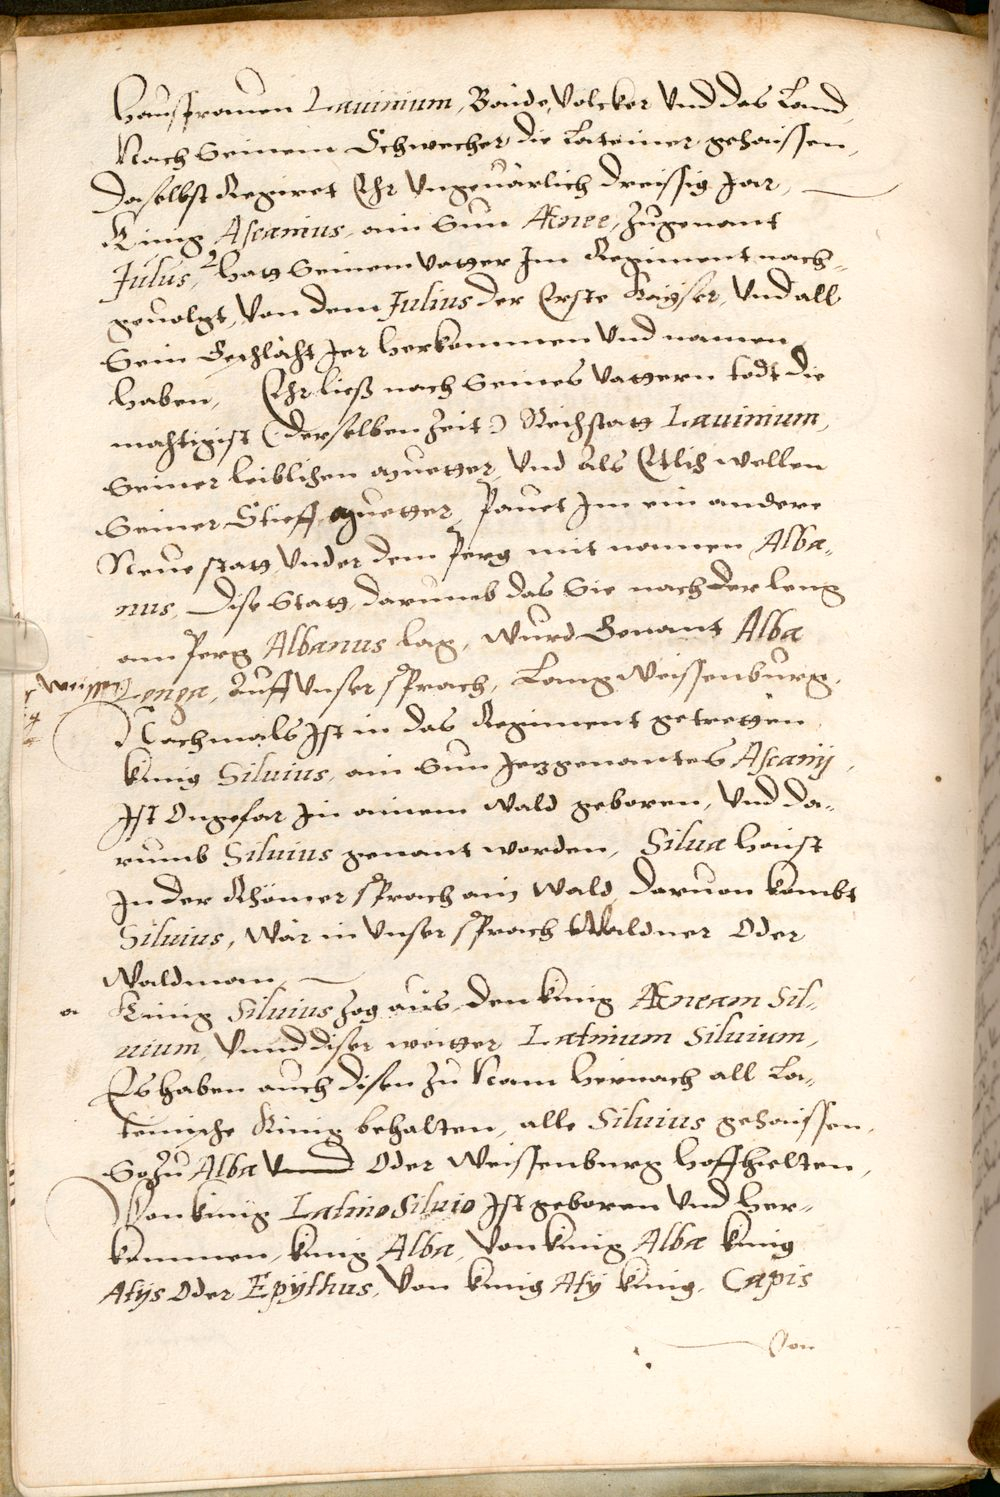 Hausfrauen Lauinium, Baide, Volcker Vnd das Land,
Nach Seinem Schwecher die Lateiner gehaissen,
Daselbst Regiret Ehr Vngeuärlich dreissig Jar,
King Ascanius ain Sun Æneę, Zugenant
Julus, hatt Seinem Vatter Im Regiment nach-
geuolgt, Von dem Julius der Erste Kaÿser, Vnd all
Sein Geschlächt Jer herkommen Vnd namen
haben, Ehr ließ nach Seines Vattern todt die
mächtigist (derselben Zeit) Reichstatt Lauinium,
Seiner leiblichen muetter, Vnd als Etlich wellen
Seiner Stieff muetter, Pauet Im ein andere
Neue statt Vnder dem Perg mit nammen Alba-
nus, Dise Statt, darumb das Sie nach der leng
am Perg Albanus lag, Wurd Genant Alba
Longa, Auff Vnser sprach, Lang Weissenburg,
Nachmals Ist in das Regiment getretten
king Siluius, ain Sun Jezgenantes Ascanij,
Ist Ongefar In ainem Wald geboren, Vnd da-
rumb Siluius genant worden, Silua haist
In der Rhömer sprach ain Wald, daruon kombt
Siluius, Wär in Vnser sprach Waldner Oder
Waldman
King Siluius Zog aus, den king Æneam Sil-
uium, Vnnd diser weitter Latinum Siluium,
Es haben auch disen Zu Nam hernach all La-
teinische King behalten, alle Siluius gehaissen,
So Zu Alba Vnnd Oder Weissenburg hoff hielten,
Von king Latino Siluio Ist geboren Vnd her-
kommen, king Alba, Von king Alba king
Atÿs Oder Epÿthus, Von king Atÿ king Capis
Von